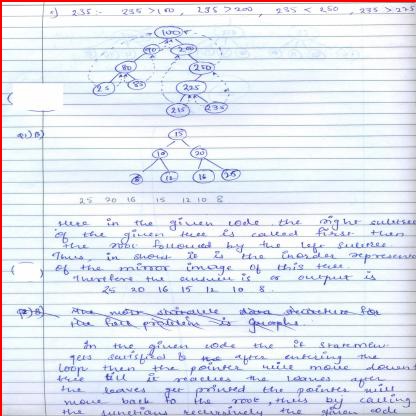 1) 235 :- 235 > 100, 235 > 200, 235 < 250, 235 > 225
100
90 200
80 250
25 85 225
215 235
Q1) B)
15
10 20
8 12 16 25
25 20 16 15 12 10 8
Here in the given code the right subtree
of the given tree is called first then
the root followed by the left subtree.
Thus, in short it is the inorder represent
of the mirror image of this tree.
Therefore the answer is or output is
25 20 16 15 12 10 8.
Q2) B) The most suitable data structure for
the problem is Graphs.
In the given code the if statement
gets satisfied to the after entering the
loop then the pointer will move down
tree till it reaches the leaves after
the leaves get printed the pointer will
move back to the root, thus by calling
the functions recursively the given code